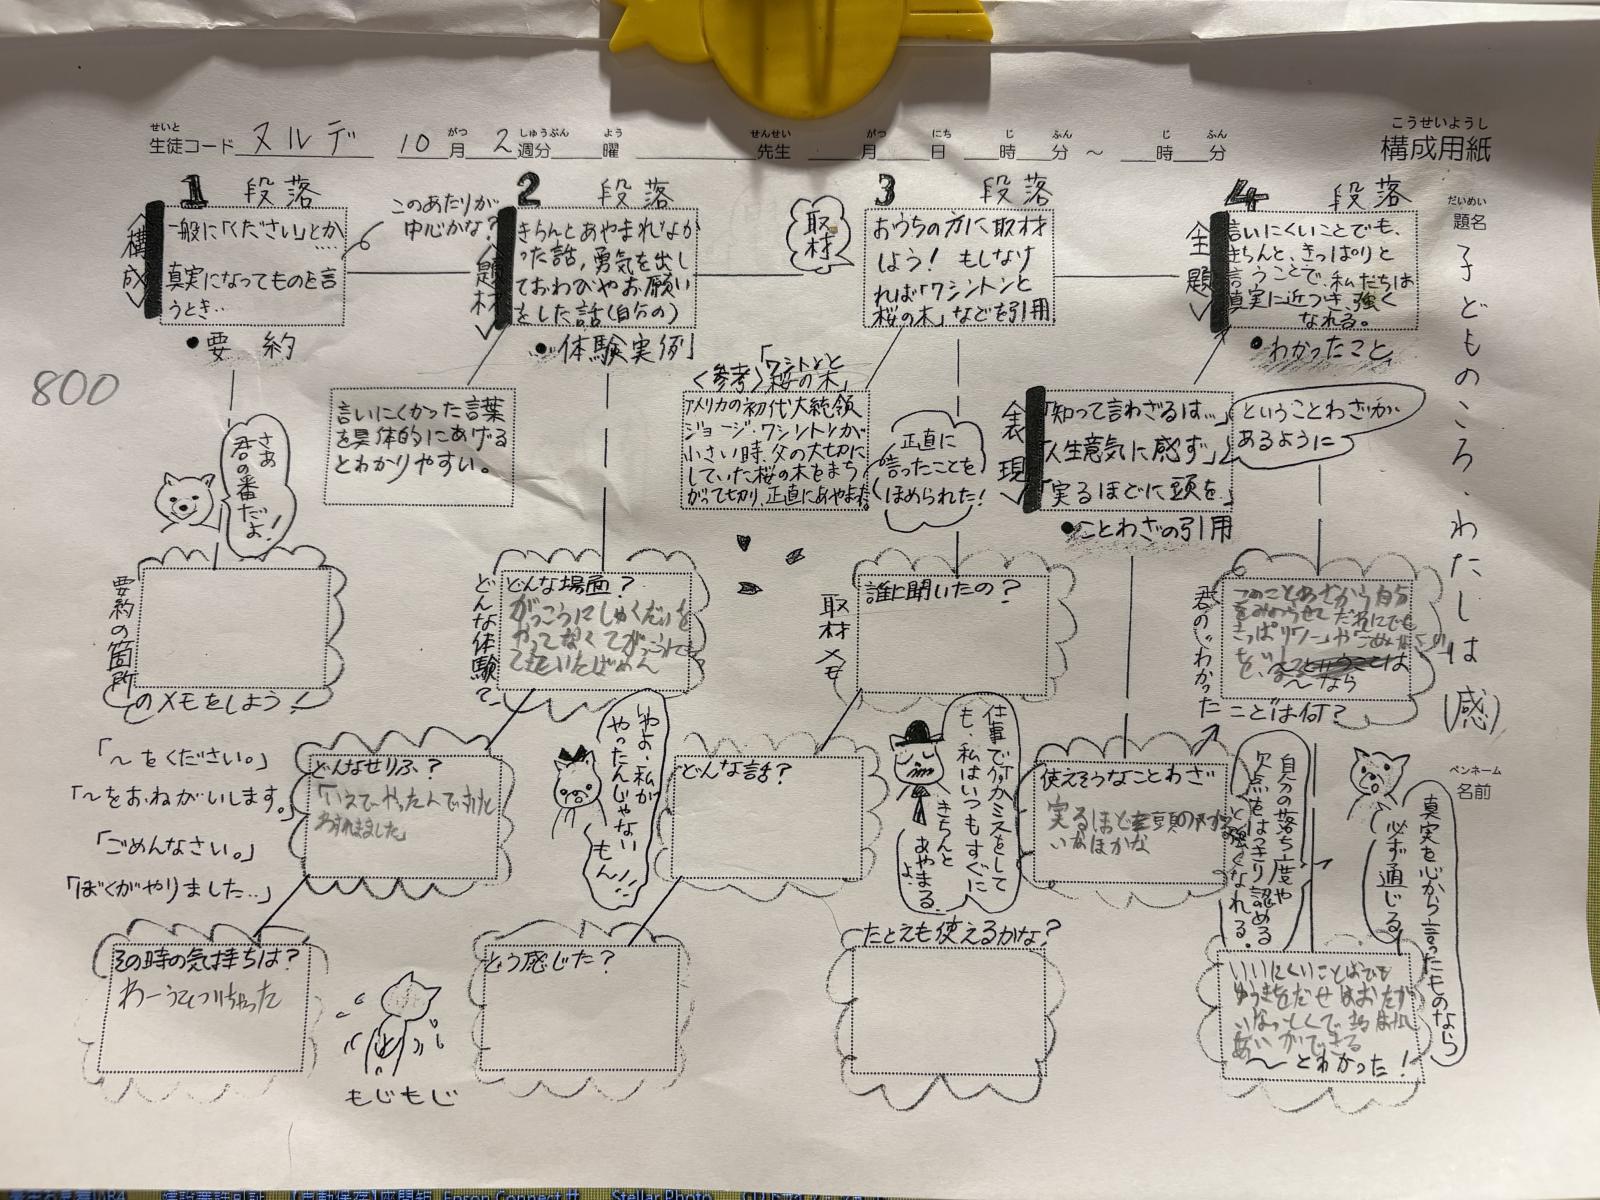 800
せいと
生徒コード ヌルデ 10月 2週分 曜 先生 月 日 時 分 ～ 時 分
がつ しゅうぶん よう せんせい がつ にち じ ふん じ ふん
こうせいようし
構成用紙
だいめい
題名
子どものころ、わたしは(感)
ペンネーム
名前
1 段落
構成
一般に「ください」とか
真実になってものを言
うとき…
●要約
このあたりが
中心かな？
2 段落
題材
きちんとあやまれなか
った話，勇気を出し
ておわびやお願い
をした話(自分の)
●「体験実例」
言いにくかった言葉
を具体的にあげる
とわかりやすい。
3 段落
取材
おうちの方に取材
しよう！ もしなけ
れば「ワシントンと
桜の木」などを引用
〈参考〉「ワシントンと
桜の木」
アメリカの初代大統領
ジョージ・ワシントンが
小さい時、父の大切に
していた桜の木をまち
がって切り、正直にあやまった。
正直に
言ったことを
ほめられた！
4 段落
主題
言いにくいことでも、
きちんと、きっぱりと
言うことで、私たちは
真実に近づき、強く
なれる。
●わかったこと
表現
「知って言わざるは…」
「人生意気に感ず」
「実るほどに頭を」
●ことわざの引用
ということわざが
あるように
さあ
君の番だよ！
要約の箇所
のメモをしよう！
どんな体験？
どんな場面？
がっこうにしゅくだいを
やってなくてがっこうに
取材メモ
誰に聞いたの？
君の"わかった"
ことは何？
～なら
「～をください。」
「～をおねがいします。」
「ごめんなさい。」
「ぼくがやりました…」
どんなせりふ？
「いえでやったんですけど
わすれました」
いやよ、私が
やったんじゃない
もん!!
どんな話？
仕事で何かミスをして
も、私はいつもすぐに
きちんと
あやまる
よ。
使えそうなことわざ
実るほど頭の
いなほかな
自分の落ち度や
欠点をはっきり認める
と強くなれる。
真実を心から言ったものなら
必ず通じる。
その時の気持ちは？
もじもじ
どう感じた？
たとえも使えるかな？
いいにくいことばでも
ゆうきをだせば
～とわかった！